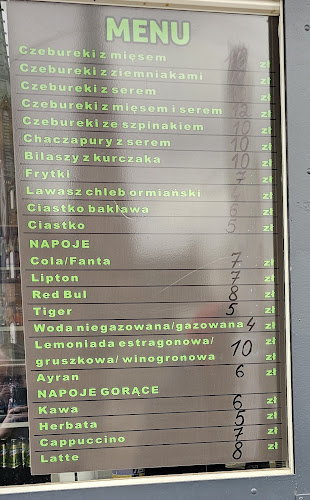 MENU
Czebureki z mięsem zł
Czebureki z ziemniakami zł
Czebureki z serem zł
Czebureki z mięsem i serem 12 zł
Czebureki ze szpinakiem 10 zł
Chaczapury z serem 10 zł
Bilaszy z kurczaka 10 zł
Frytki 7 zł
Lawasz chleb ormiański zł
Ciastko bakława 6 zł
Ciastko zł
NAPOJE
Cola/Fanta 7 zł
Lipton 7 zł
Red Bul 8 zł
Tiger 5 zł
Woda niegazowana/gazowana 4 zł
Lemoniada estragonowa/
gruszkowa/ winogronowa 10 zł
Ayran 6 zł
NAPOJE GORĄCE
Kawa 6 zł
Herbata 5 zł
Cappuccino 7 zł
Latte 8 zł